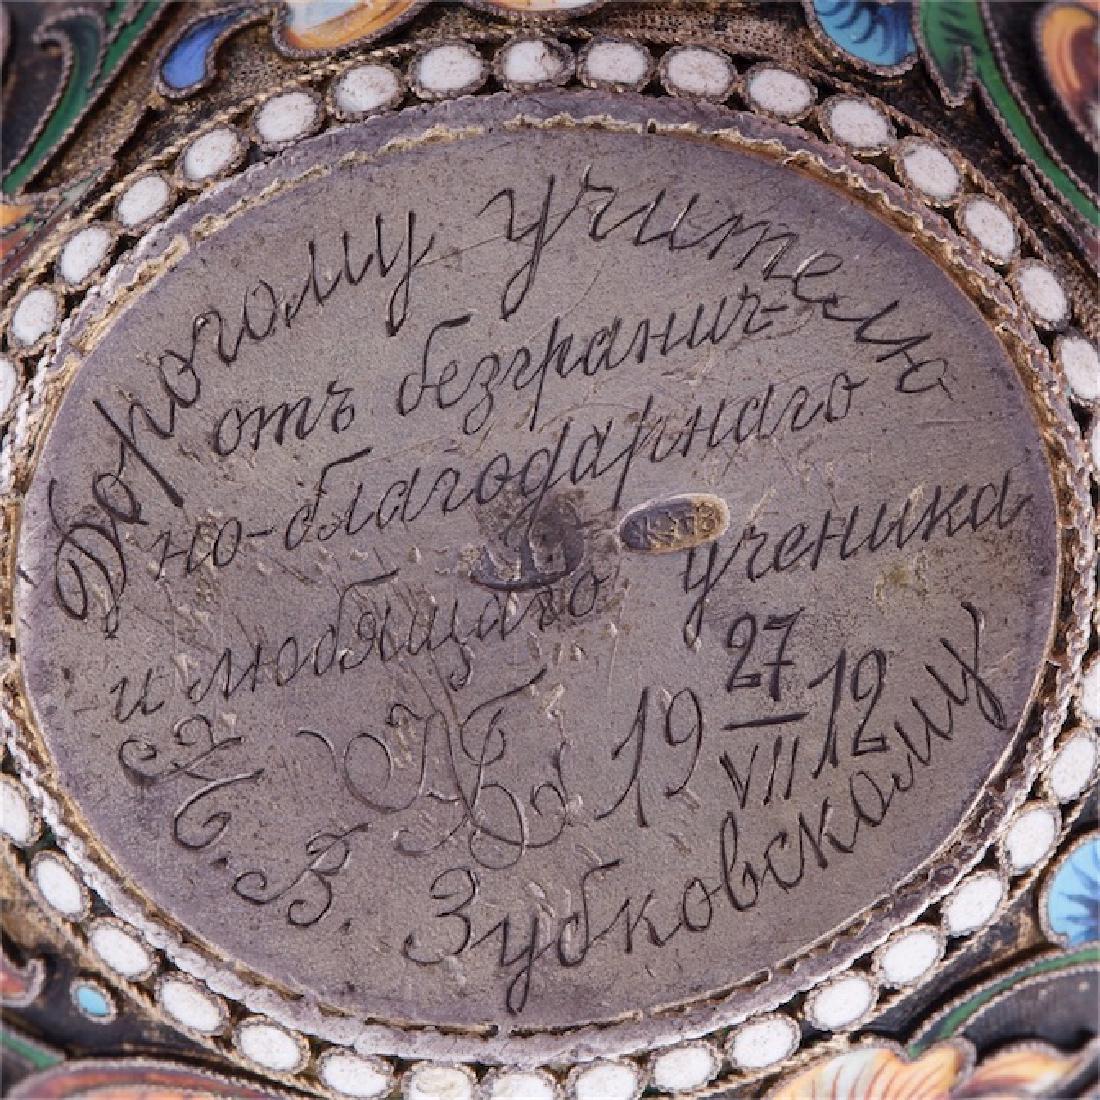 Дорогому учителю
отъ безгранич-
но-благодарнаго
и любящаго ученика
19 27/VII 12
К. В. Зубковскому